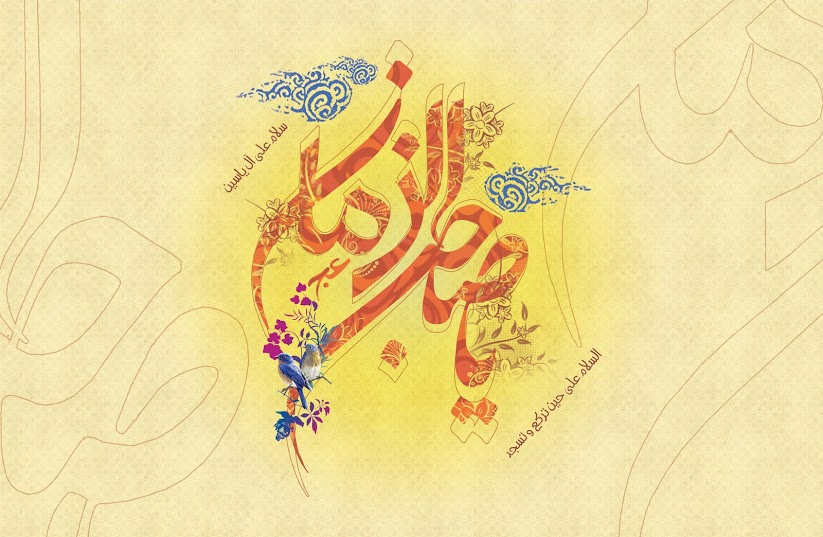 سلام علی آل یاسین
یا صاحب الزمان
عج
السلام علی حین ترکع و تسجد